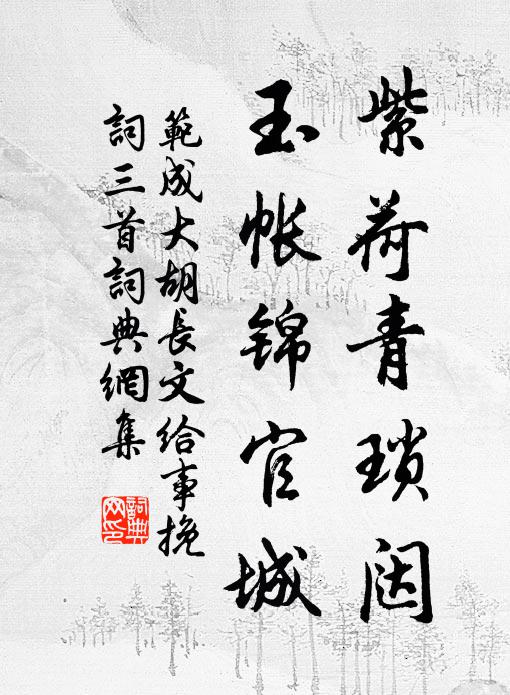 紫荷青瑣闥
玉帳錦官城
範成大胡長文給事挽
詞三首詞典網集
詞典
网印